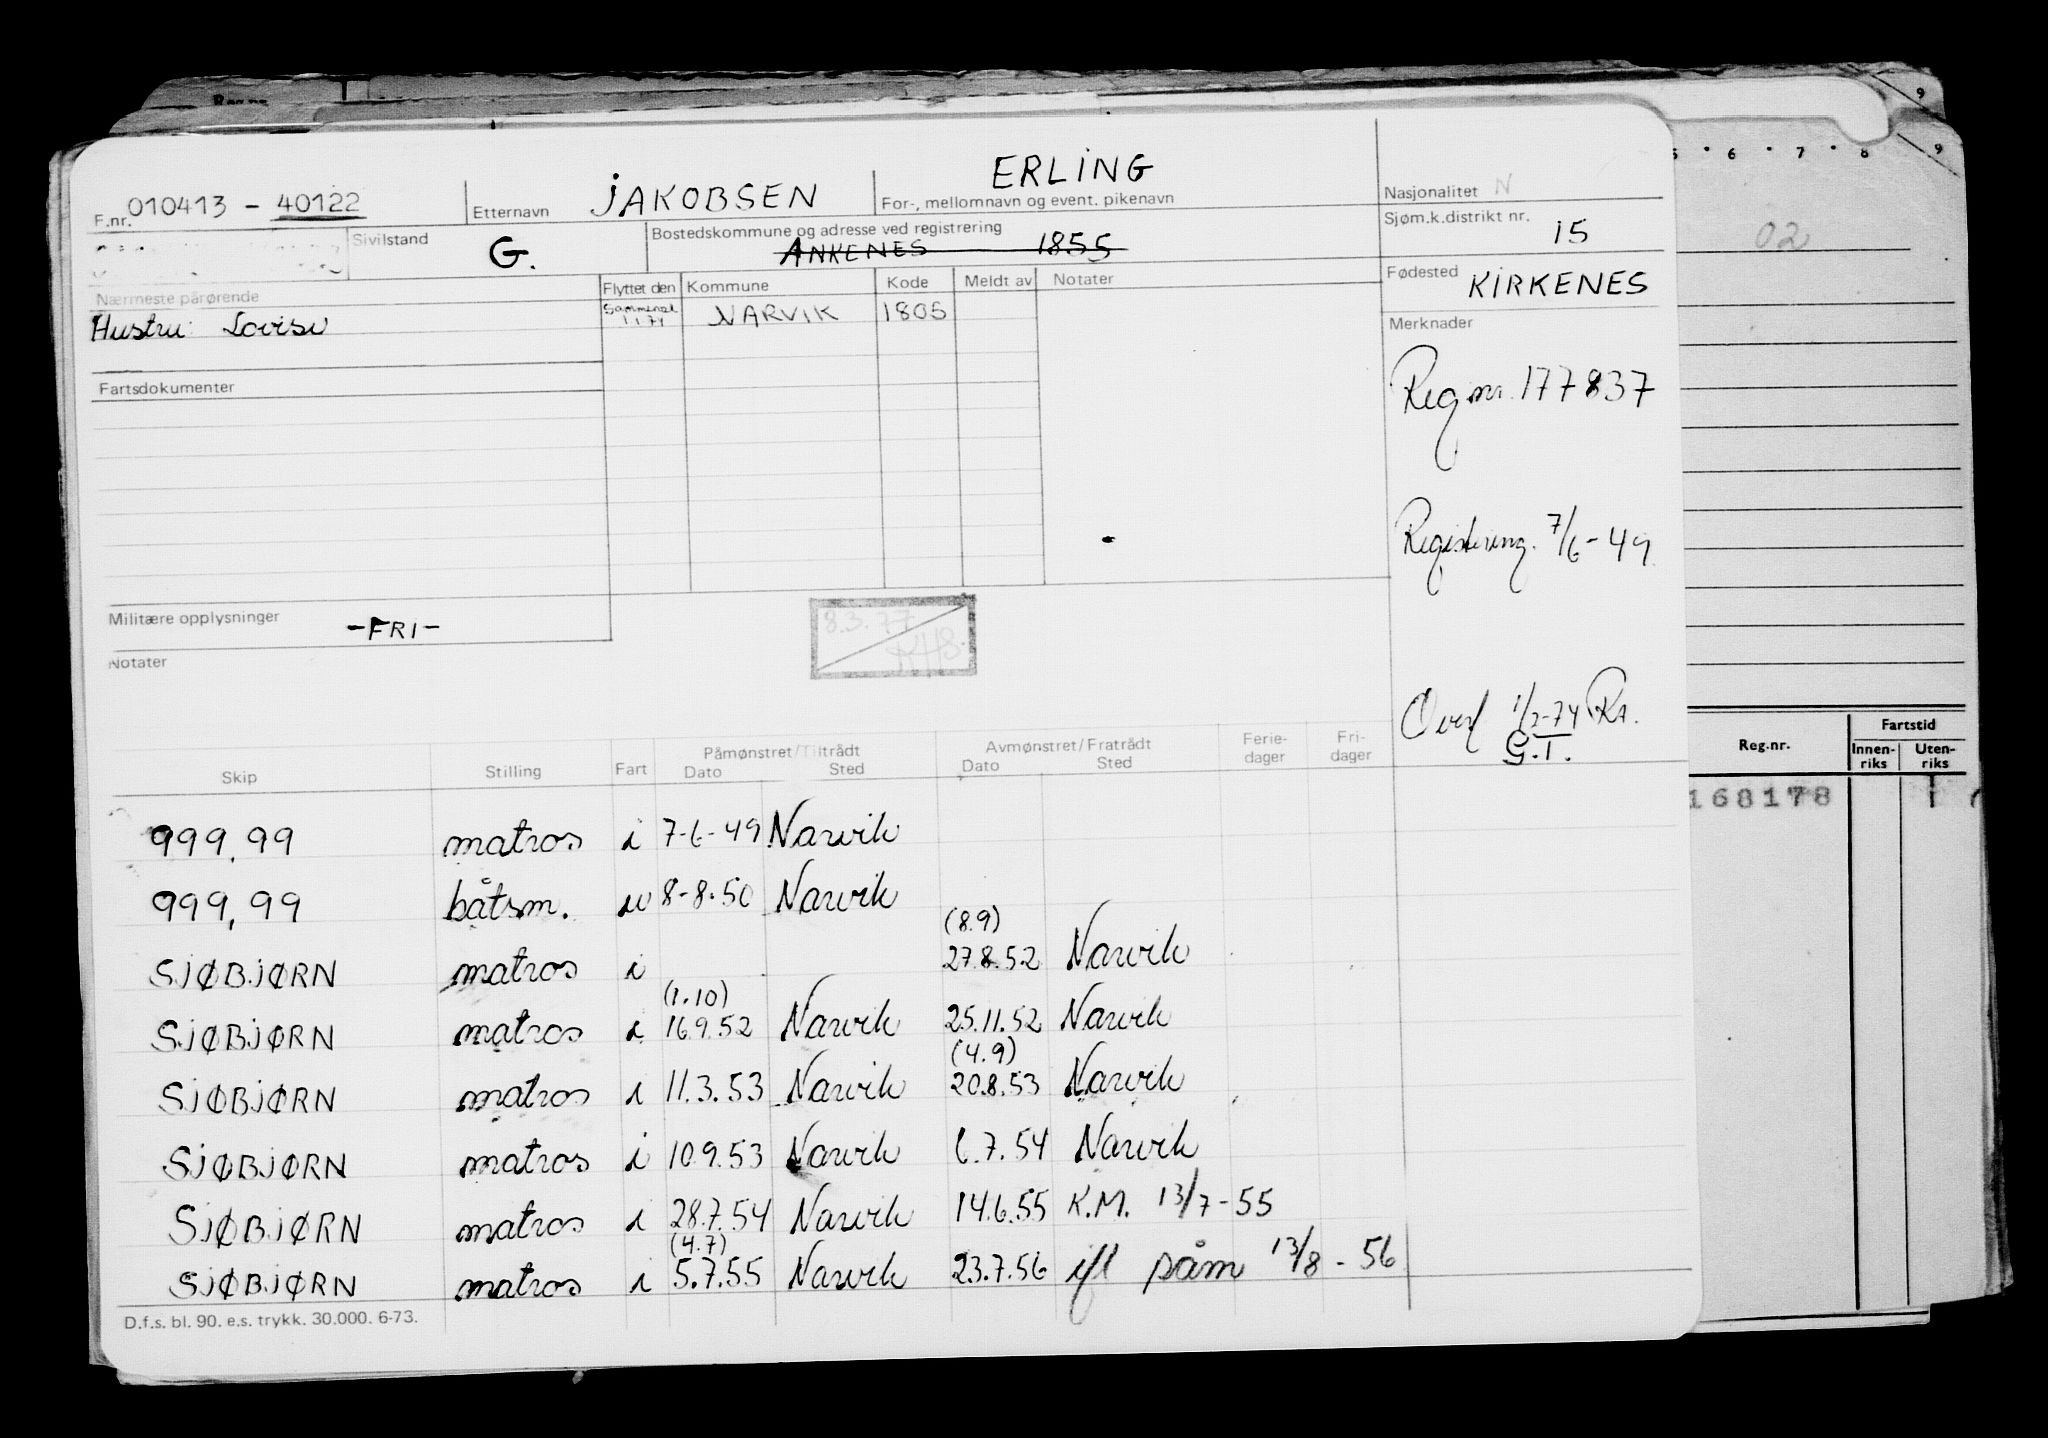 F.nr. 010413 - 40122
Etternavn JAKOBSEN
For-, mellomnavn og event. pikenavn ERLING
Nasjonalitet N
Sivilstand G.
Bostedskommune og adresse ved registrering
ANKENES 1855
Sjøm.k.distrikt nr. 15
Fødested KIRKENES
Nærmeste pårørende
Hustru: Lovise
Flyttet den Kommune Kode Meldt av Notater
1.1.74 NARVIK 1805
Merknader
Reg nr. 177837
Fartsdokumenter
Registrering. 7/6-49
Militære opplysninger -FRI-
8.3.77
Notater
Overf 1/2-74 Ra.
G.I.
Skip Stilling Fart Påmønstret/Tiltrådt Dato Sted Avmønstret/Fratrådt Dato Sted Ferie-dager Fri-dager
999,99 matros i 7-6-49 Narvik
999,99 båtsm. u 8-8.50 Narvik
SJØBJØRN matros i (8.9) 27.8.52 Narvik
SJØBJØRN matros i (1.10) 16.9.52 Narvik 25.11.52 Narvik
SJØBJØRN matros i 11.3.53 Narvik (4.9) 20.8.53 Narvik
SJØBJØRN matros i 10.9.53 Narvik 6.7.54 Narvik
SJØBJØRN matros i 28.7.54 Narvik 14.6.55 K.M. 13/7-55
SJØBJØRN matros i (4.7) 5.7.55 Narvik 23.7.56 ifl påm 13/8-56
D.f.s. bl. 90. e.s. trykk. 30.000. 6-73.
9
6 · 7 · 8 9
02
Reg.nr. Fartstid
Innen-riks Uten-riks
168178 1